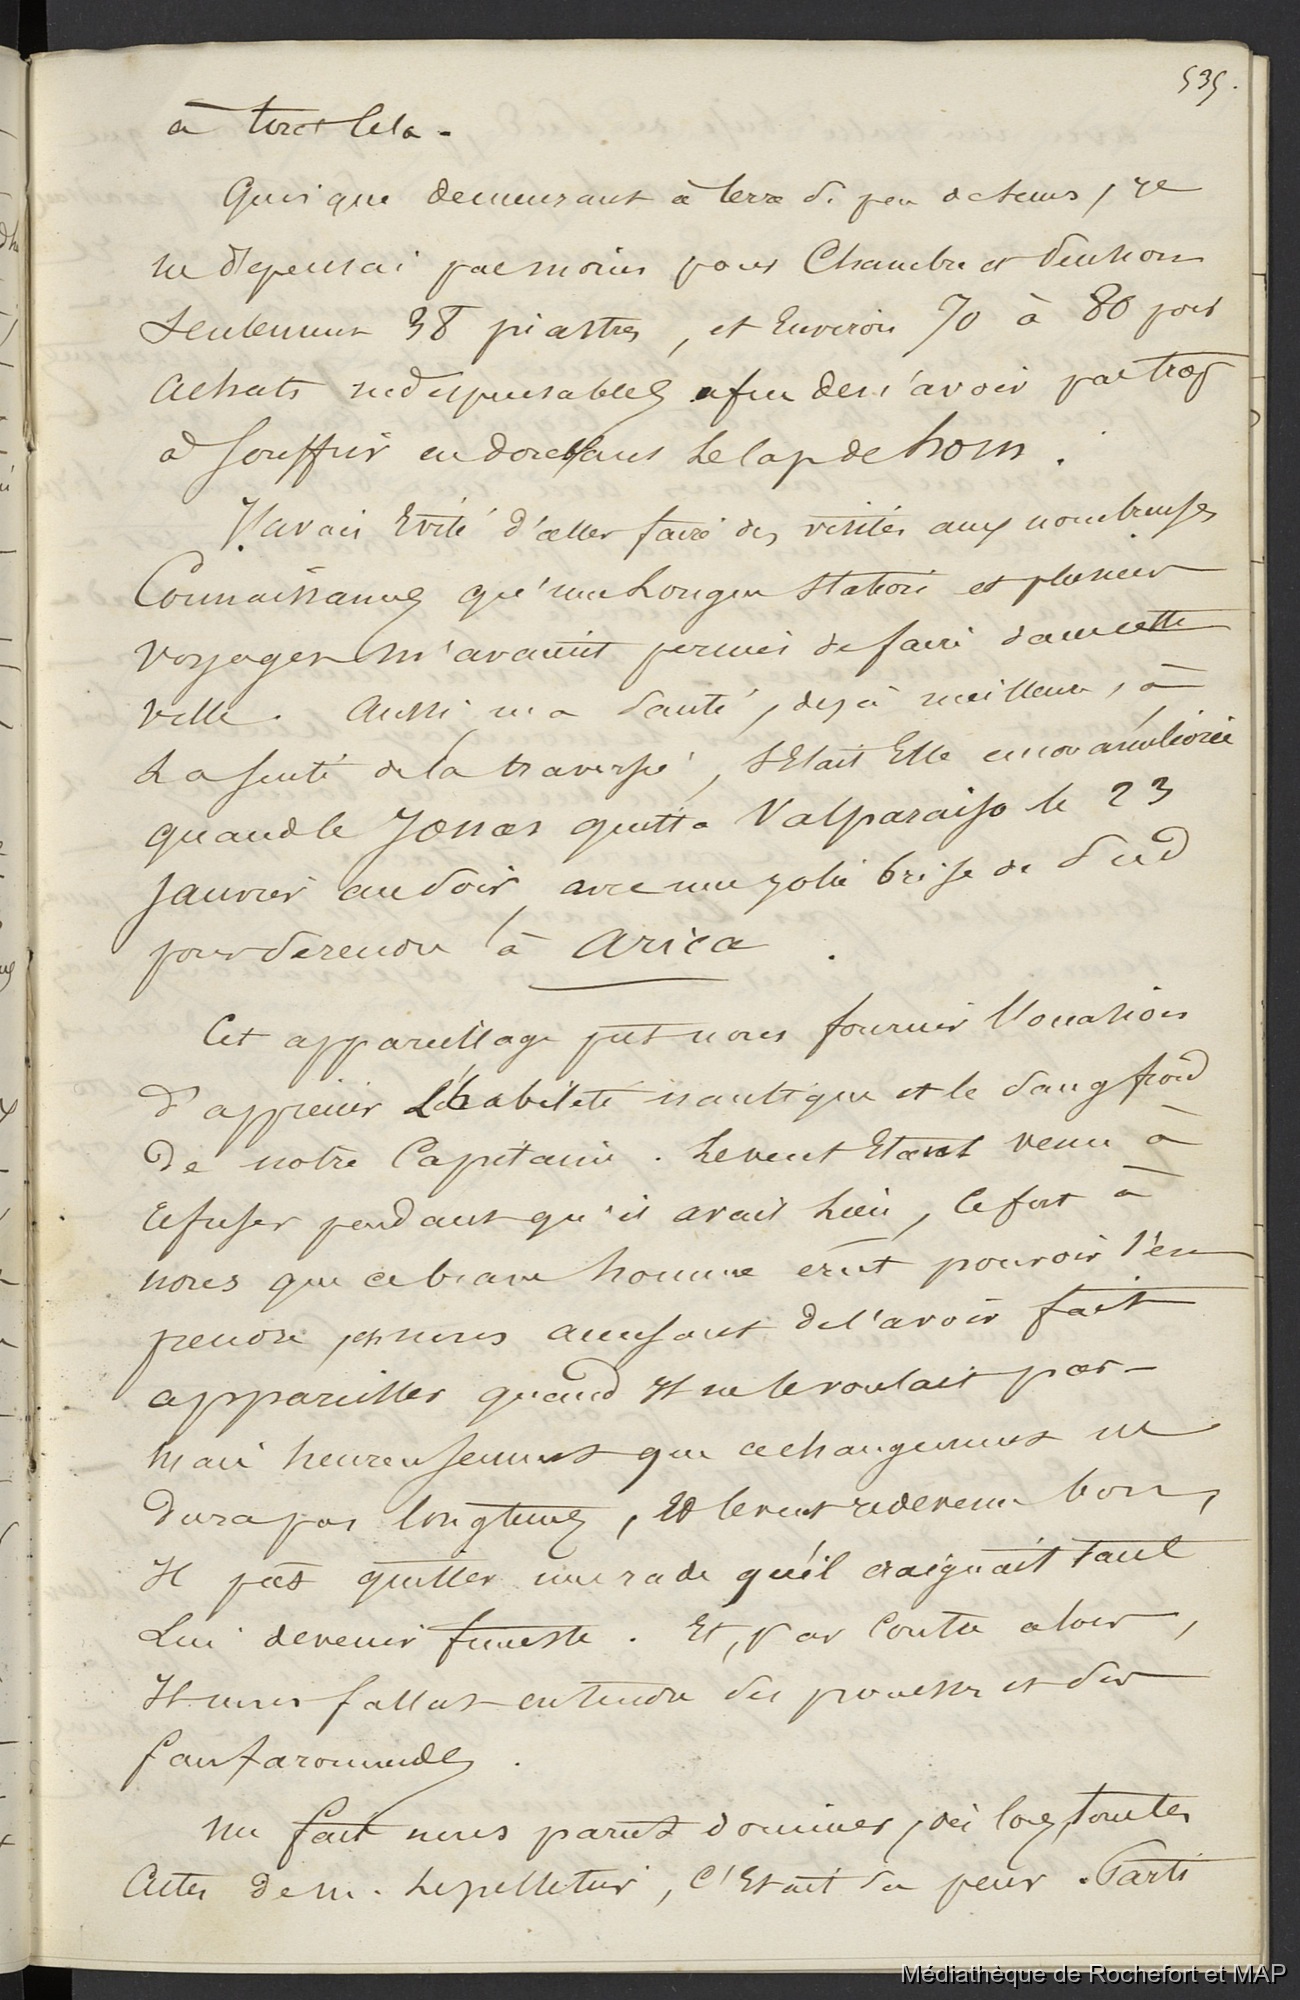 535.
à tout cela.
Quoique demeurant à terre si peu de tems, je
ne dépensai pas moins pour Chambre et pension
seulement 38 piastres, et Environ 70 à 80 pour
achats indispensables afin de n'avoir pas trop
à souffrir en doublant le Cap de horn.
J'avais Evité d'aller faire des visites aux nombreuses
Connaissances qu'une longue Station et plusieurs
voyages m'avaient permis de faire dans cette
ville. Aussi ma santé, dejà meilleure, à
la suite de la traversée, s'Etait Elle encor améliorée
quand le Jonas quitta Valparaiso le 23
Janvier au soir, avec une jolie brise de Sud
pour se rendre à Arica.
Cet appareillage put nous fournir l'occasion
d'apprécier L'habileté nautique et le sang froid
de notre Capitaine. Le vent Etant venu à
refuser pendant qu'il avait lieu, ce fut à
nous que ce brave homme crut pouvoir s'en
prendre, en nous accusant de l'avoir fait
appareiller quand Il ne le voulait pas.
Mais heureusement que ce changement ne
dura pas longtems, Et le vent redevenu bon,
Il put quitter une rade qu'il craignait tant
Lui devenir funeste. Et, par contre alors,
Il nous fallut entendre des prouesses et des
fanfaronnades.
Un fait nous parut dominer, dès lors, tous les
Actes de M. Lepelletier, C'Etait sa peur. Parti
Médiathèque de Rochefort et MAP